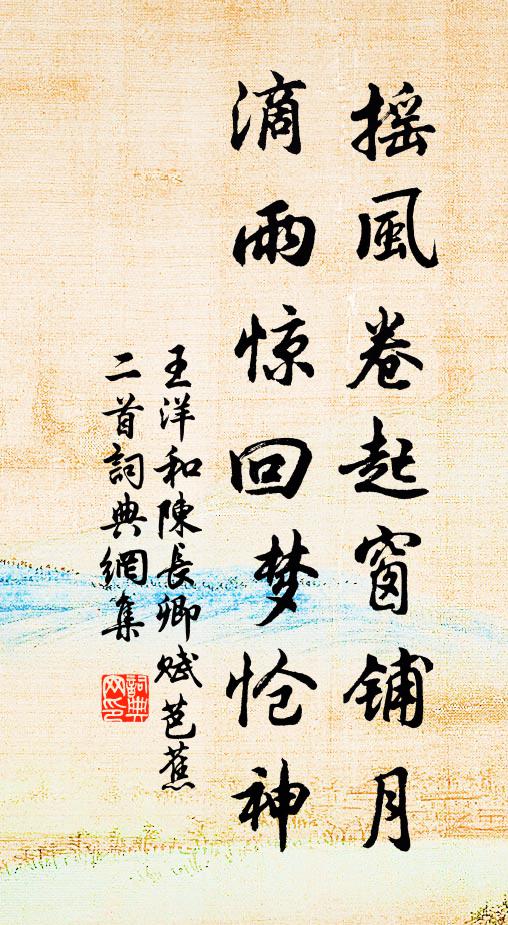 摇風卷起窗铺月
滴雨惊回梦怆神
王洋和陳長卿赋芭蕉
二首詞典網集
詞典网印